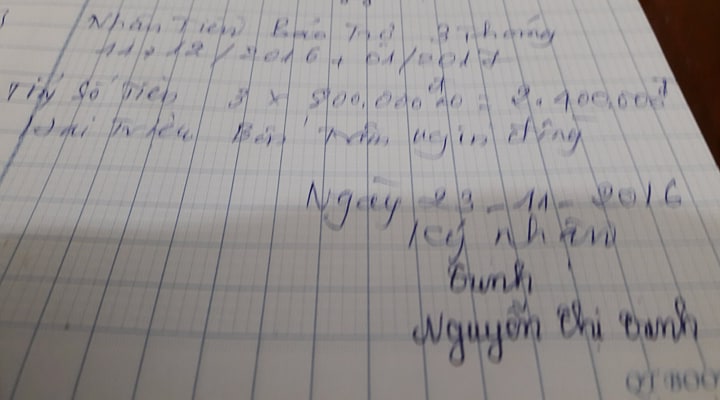 Nhận Tiền Bảo Trợ 3 Tháng
11+12/2016+01/2017
Tiền Số Tiền 3 x 800.000đ = 2.400.000đ
Hai Triệu Bốn Trăm ngìn đồng
Ngày 23-11-2016
Ký nhận
Oanh
Nguyễn Thị Oanh